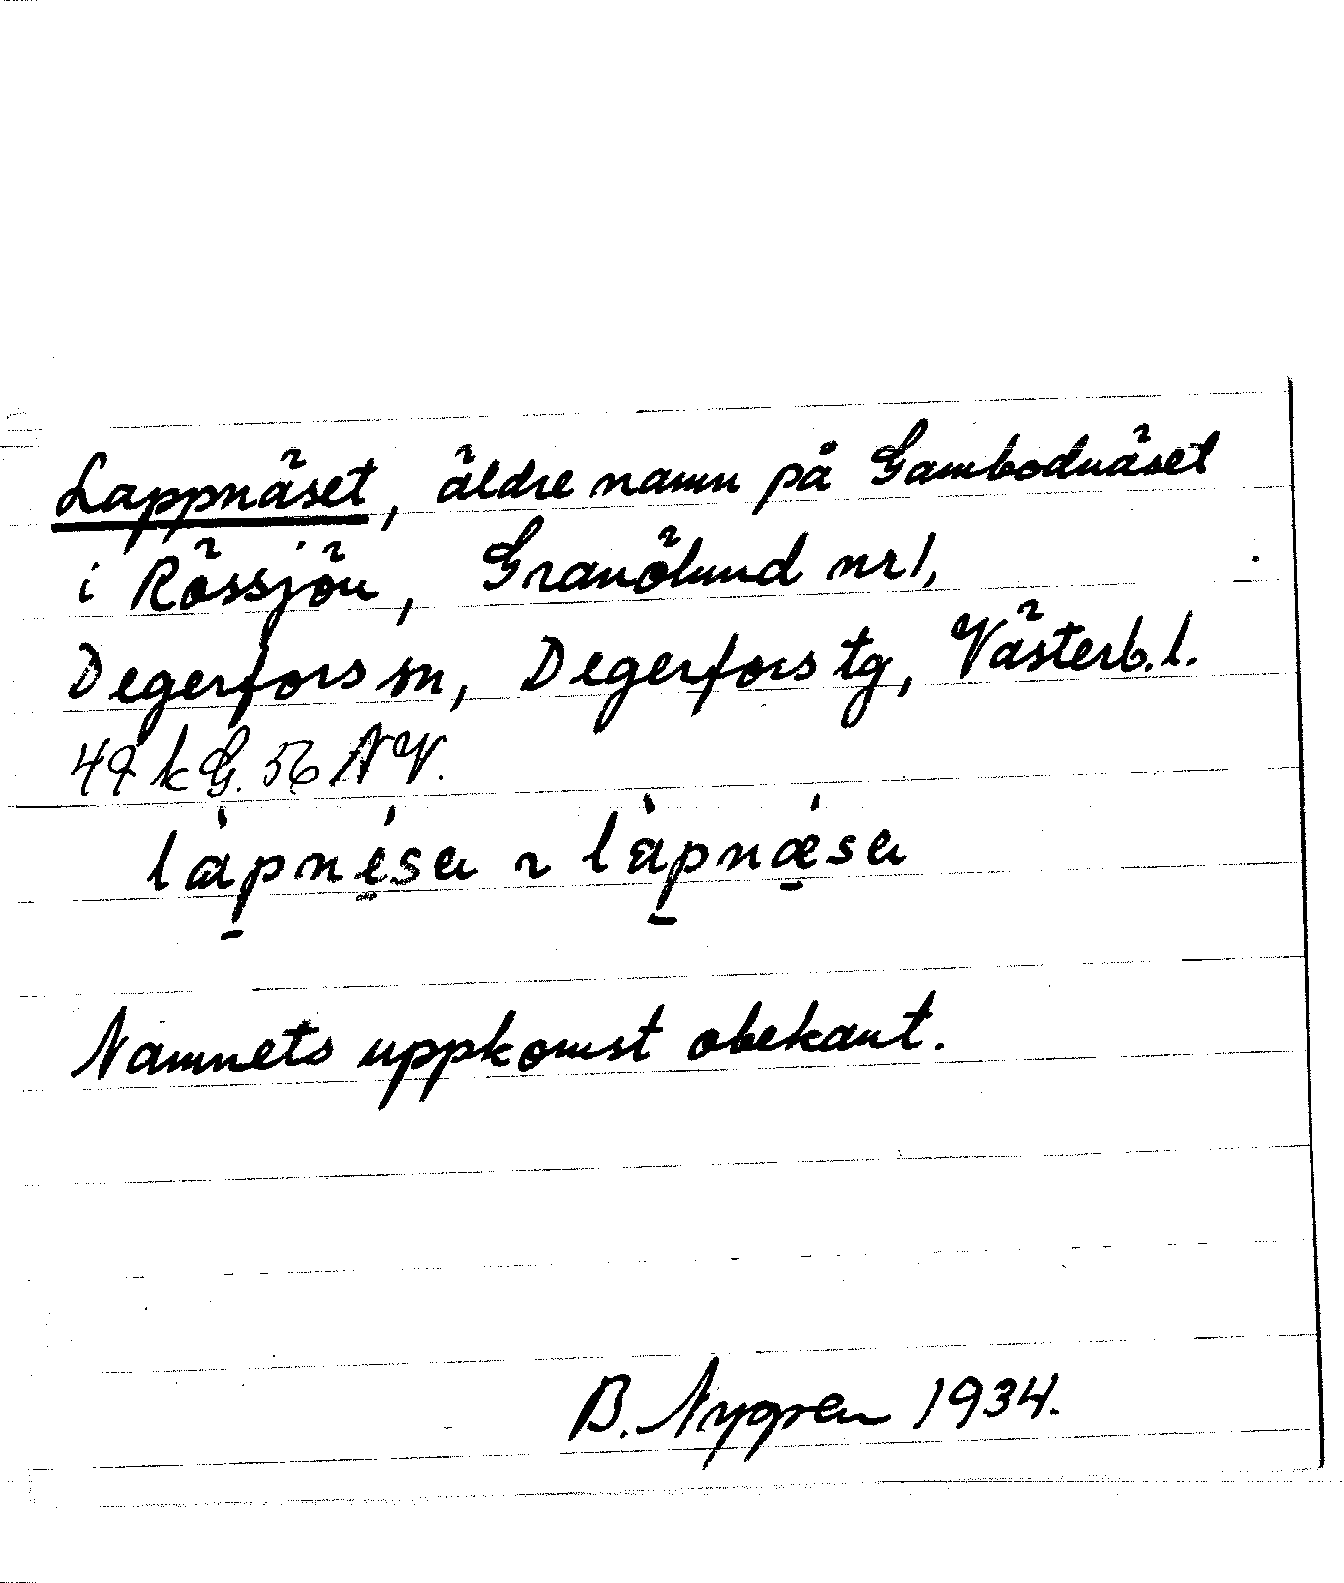 Lappnäset, äldre namn på Gambodnäset
i Rössjön, Granölund nr 1,
Degerfors sn, Degerfors tg, Västerb. l.
49 k G. 56 NV.
làpnésa ~ làpnǽsa
Namnets uppkomst obekant.
B. Nygren 1934.